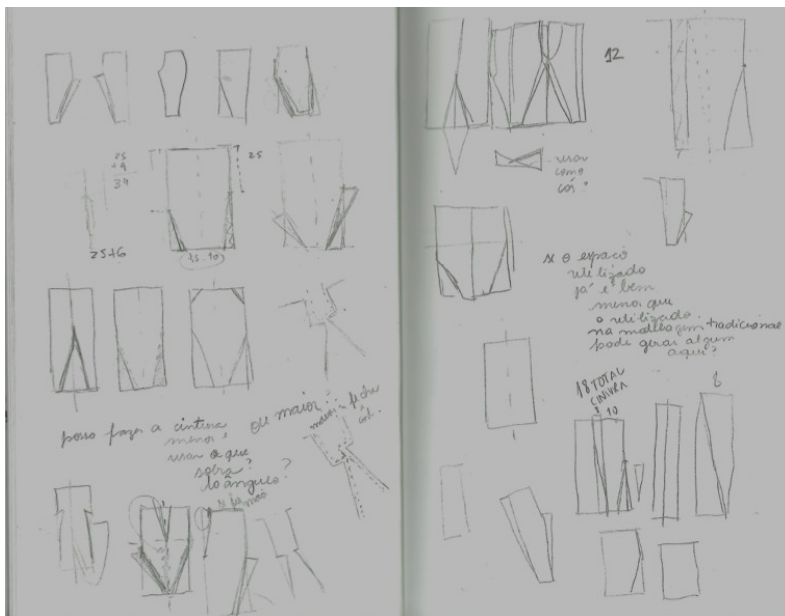 25
+9
34
25
25+6
15.10
posso fazer a cintura
menor e
usar o que
sobra?
ou maior?
o ângulo?
12
usar
como
cós?
se o espaço
utilizado
já é bem
menor que
o utilizado
na modelagem tradicional
pode gerar algum
aqui?
18 TOTAL
CINTURA
8 10